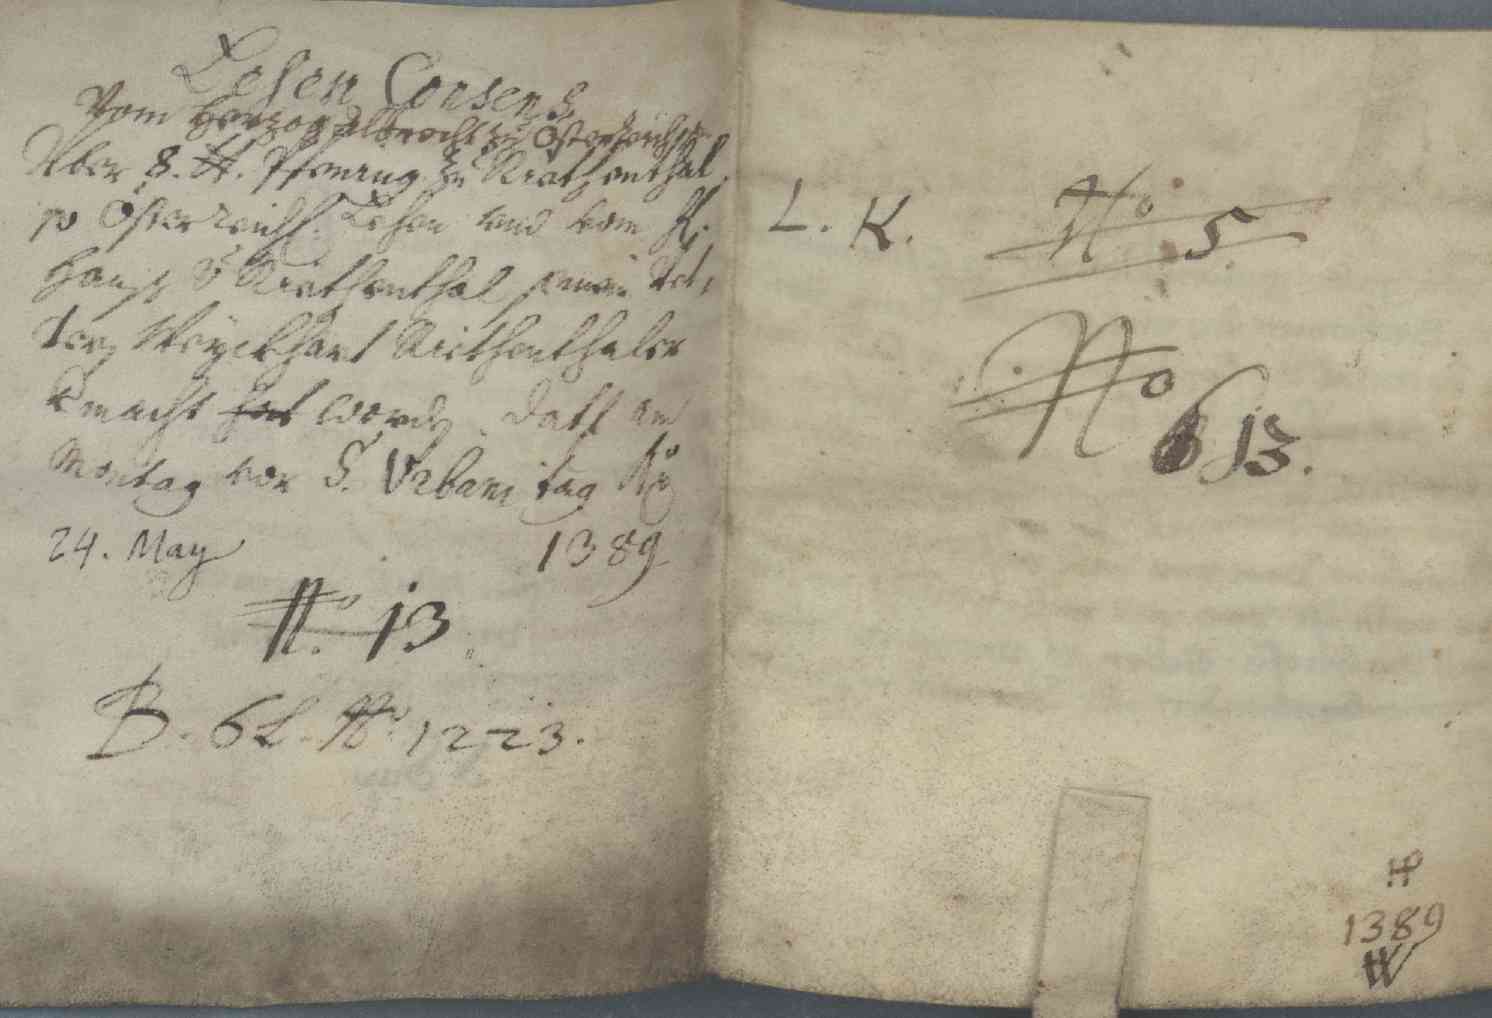 Lehen Consens
Vom Herzog Albrecht zu Österreich
Über 8. tt. Pfening zu Riethenthal,
so Österreich. Lehen und vom H.
Hans v Riethenthal seinem Vet-
tern Weyckhart Riethenthaler
gmacht hat word, Datt am
Montag vor S. Urbani tag
24. May 1389
No. 13.
B. 62. No. 1223.
L. K. No 5
No 6 13.
1389
W